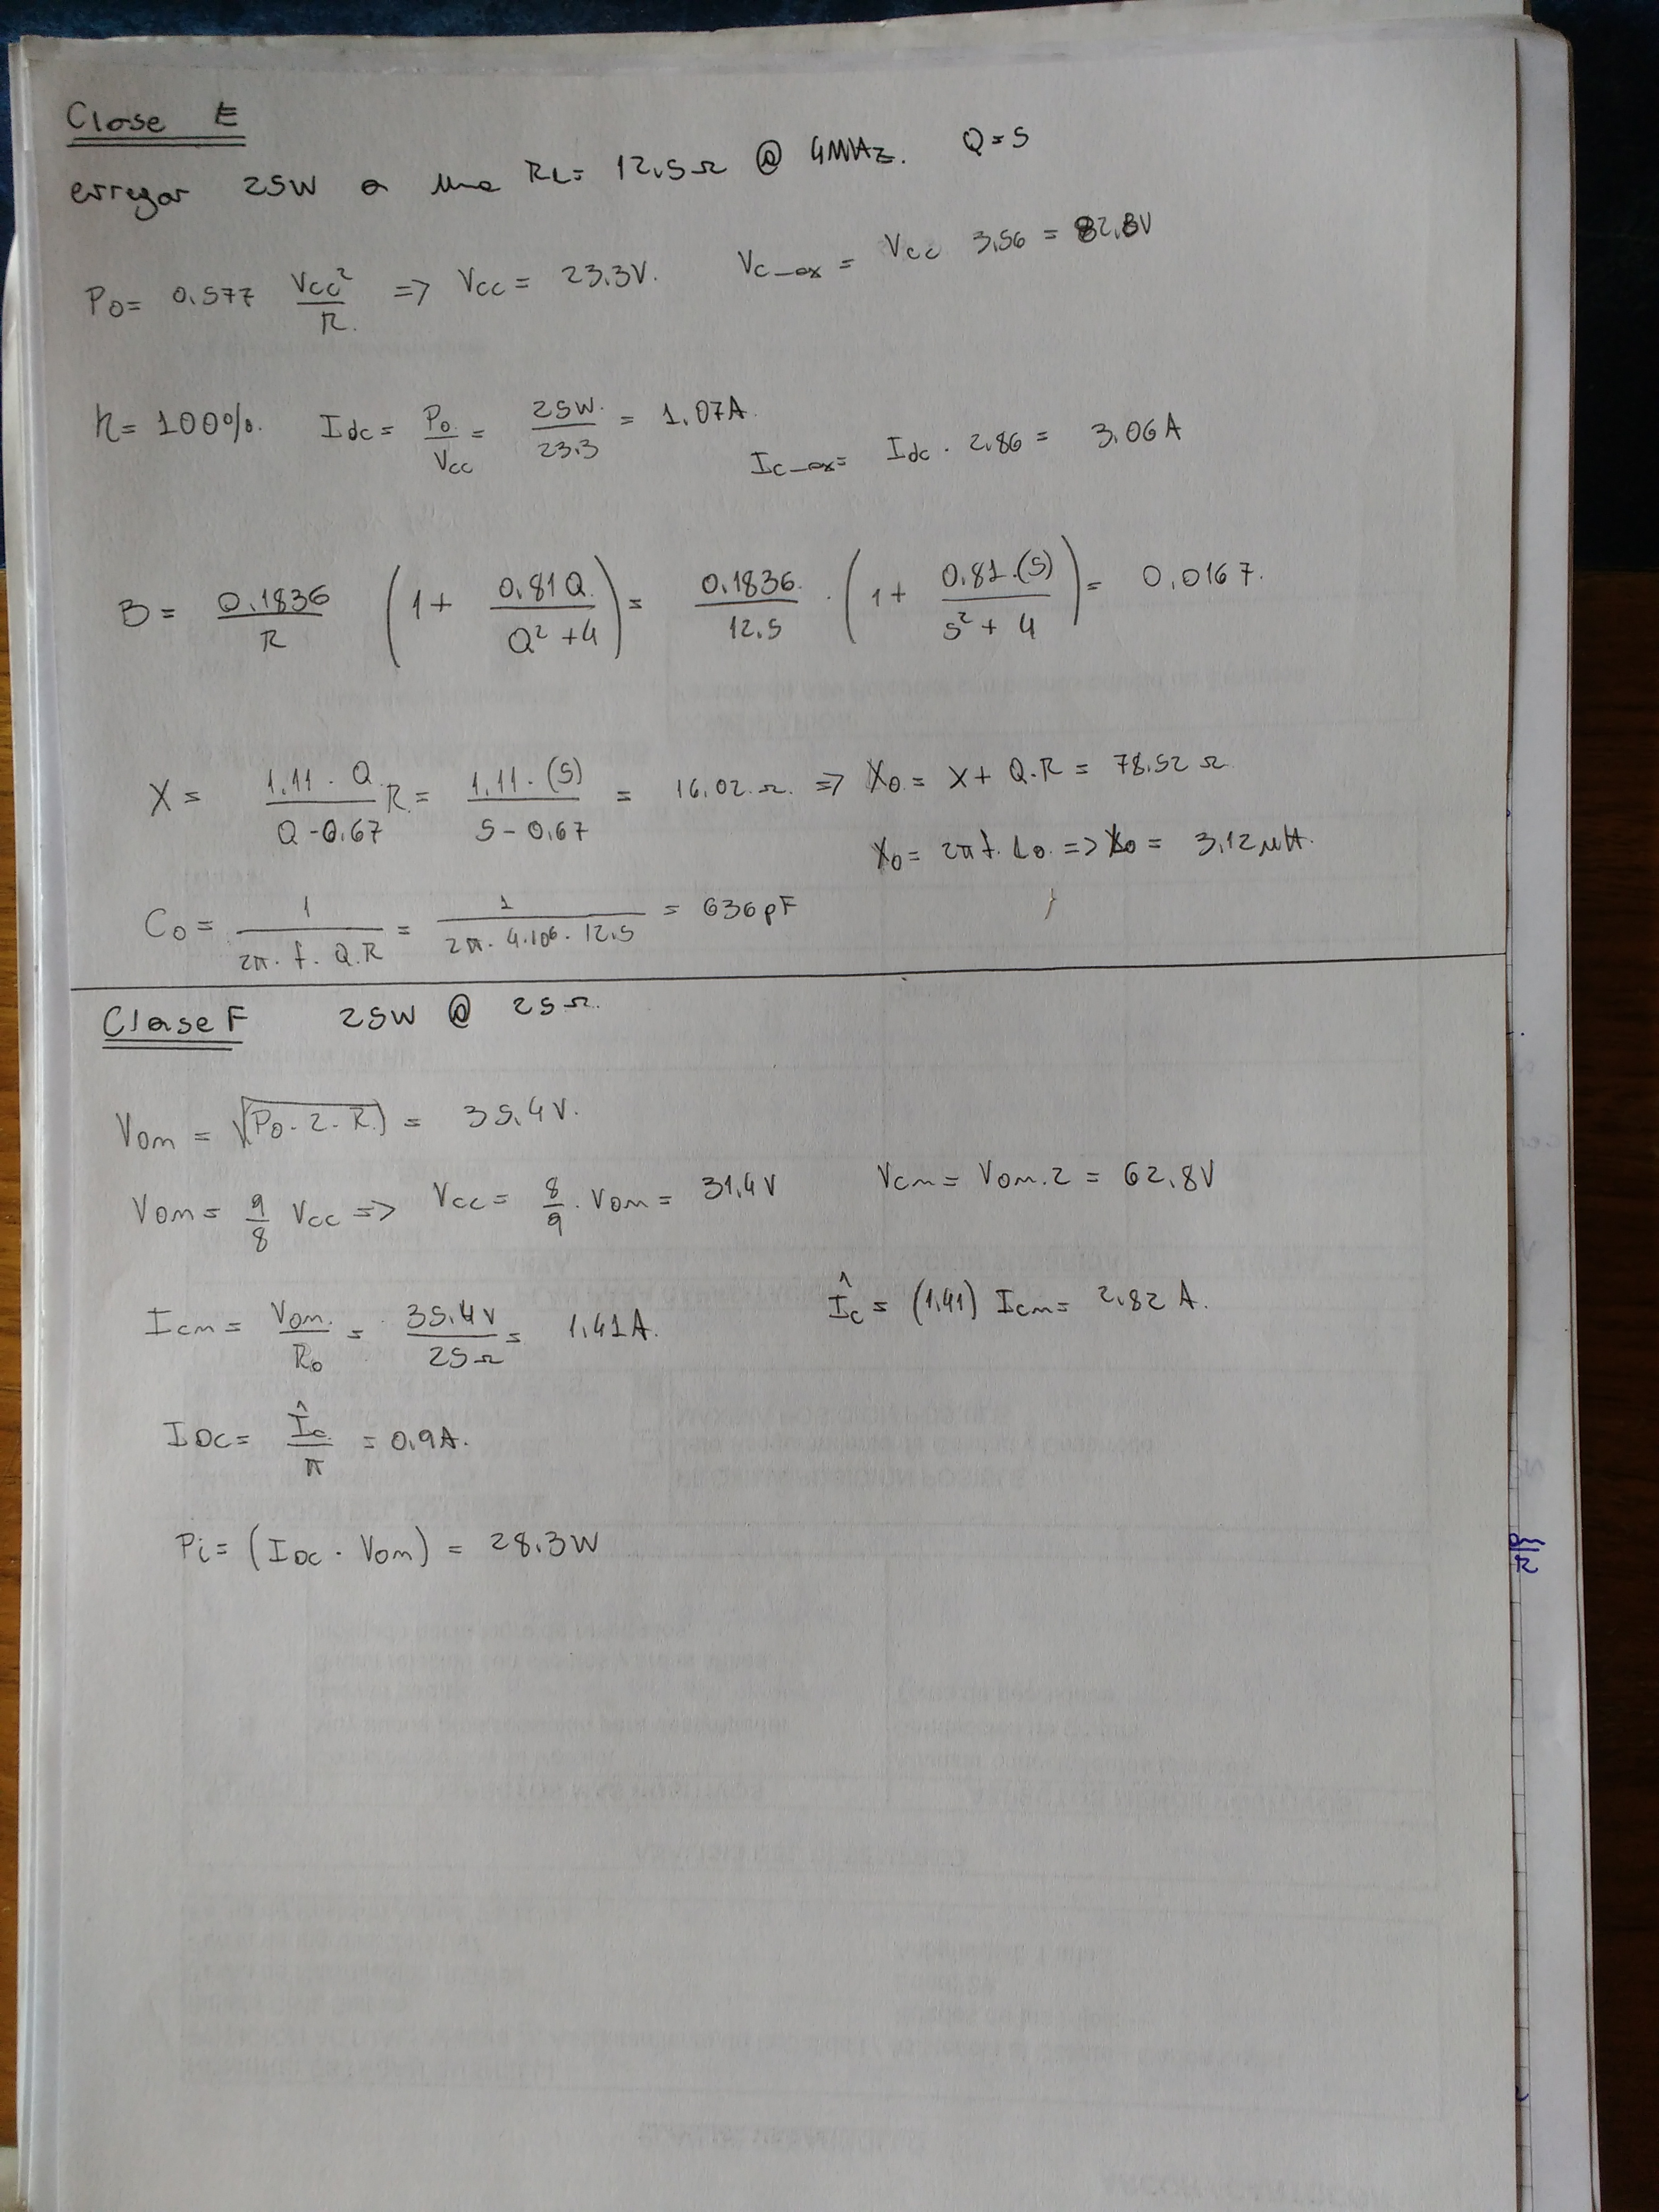 Clase E
erregar 25W a una RL= 12,5Ω @ 4MHz. Q=5
Po= 0,577 Vcc²/R. => Vcc= 23.3V. Vc_ax = Vcc 3,56 = 82,8V
η= 100%. Idc= Po/Vcc = 25W./23.3 = 1.07A. Ic_ax= Idc . 2,86 = 3.06A
B= 0.1836/R (1+ 0,81Q./Q²+4) = 0.1836./12.5 . (1+ 0,81.(5)/5²+4) = 0,0167.
X= 1,11 . Q/Q-0,67 R.= 1,11.(5)/5-0,67 = 16,02.Ω. => Xo= X+ Q.R = 78.52 Ω
Xo= 2πf. Lo. => Lo = 3,12μH.
Co= 1/2π.f.Q.R = 1/2π.4.10⁶.12,5 = 636pF
Clase F 25W @ 25Ω.
Vom = √(Po.2.R.) = 35,4V.
Vom= 9/8 Vcc => Vcc= 8/9 . Vom = 31,4V Vcm= Vom.2 = 62,8V
Icm= Vom./Ro = 35.4V/25Ω = 1,41A. Îc= (1,41) Icm= 2,82 A.
IDC= Îc/π = 0,9A.
Pi= (IDC . Vom) = 28.3W
om/R